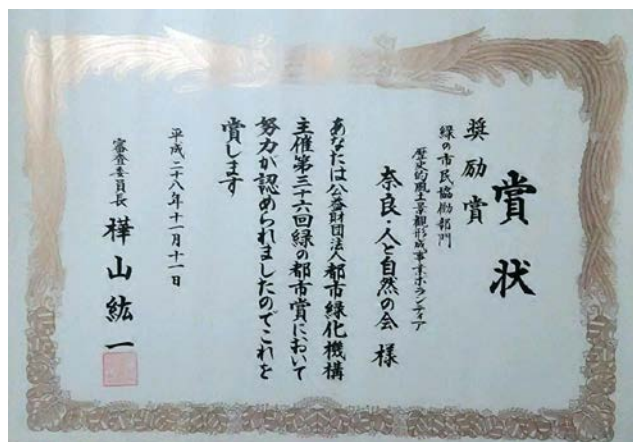 賞状
奨励賞
緑の市民協働部門
歴史的風土景観形成事業ボランティア
奈良・人と自然の会 様
あなたは公益財団法人都市緑化機構
主催第三十六回緑の都市賞において
努力が認められましたのでこれを
賞します
平成二十八年十一月十一日
審査委員長 樺山紘一